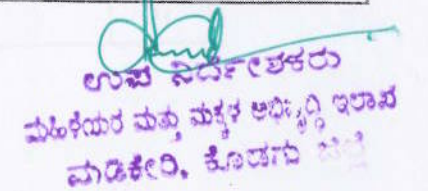 ಉಪ ನಿರ್ದೇಶಕರು
ಮಹಿಳೆಯರ ಮತ್ತು ಮಕ್ಕಳ ಅಭಿವೃದ್ಧಿ ಇಲಾಖೆ
ಮಡಿಕೇರಿ, ಕೊಡಗು ಜಿಲ್ಲೆ